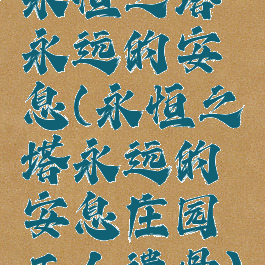 永恒之塔
永远的安
息(永恒之
塔永远的
安息庄园